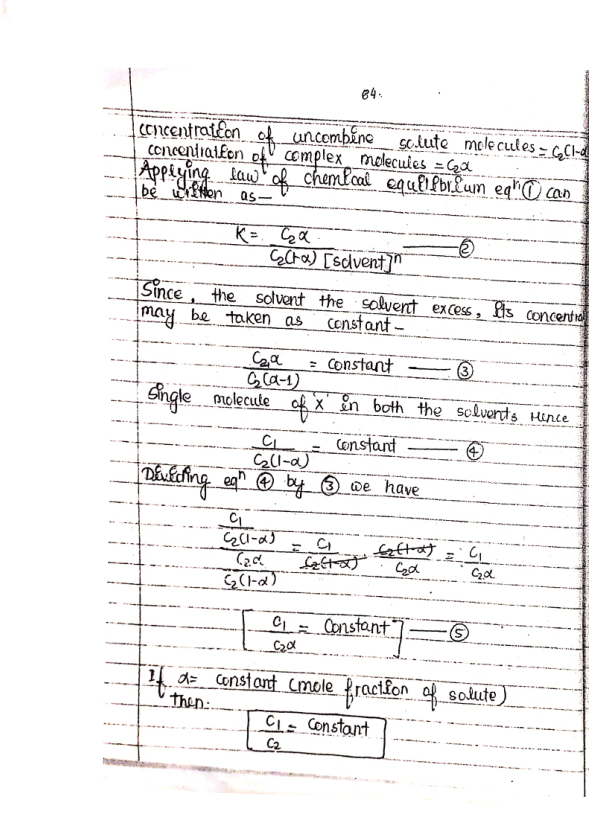 84.
concentration of uncombine solute molecules = C₂(1-α
concentration of complex molecules = C₂α
Applying law of chemical equilibrium eqⁿ ① can
be written as—
K = C₂α / C₂(1-α) [solvent]ⁿ —— ②
Since, the solvent the solvent excess, its concentra
may be taken as constant –
C₂α / C₂(α-1) = constant —— ③
Single molecule of 'X' in both the solvents Hence
C₁ / C₂(1-α) = constant —— ④
Dividing eqⁿ ④ by ③ we have
C₁ / C₂(1-α) / C₂α / C₂(1-α) = C₁ / C₂(1-α) · C₂(1-α) / C₂α = C₁ / C₂α
[C₁ / C₂α = Constant] —— ⑤
If α = constant (mole fraction of solute)
then.
C₁ / C₂ = Constant